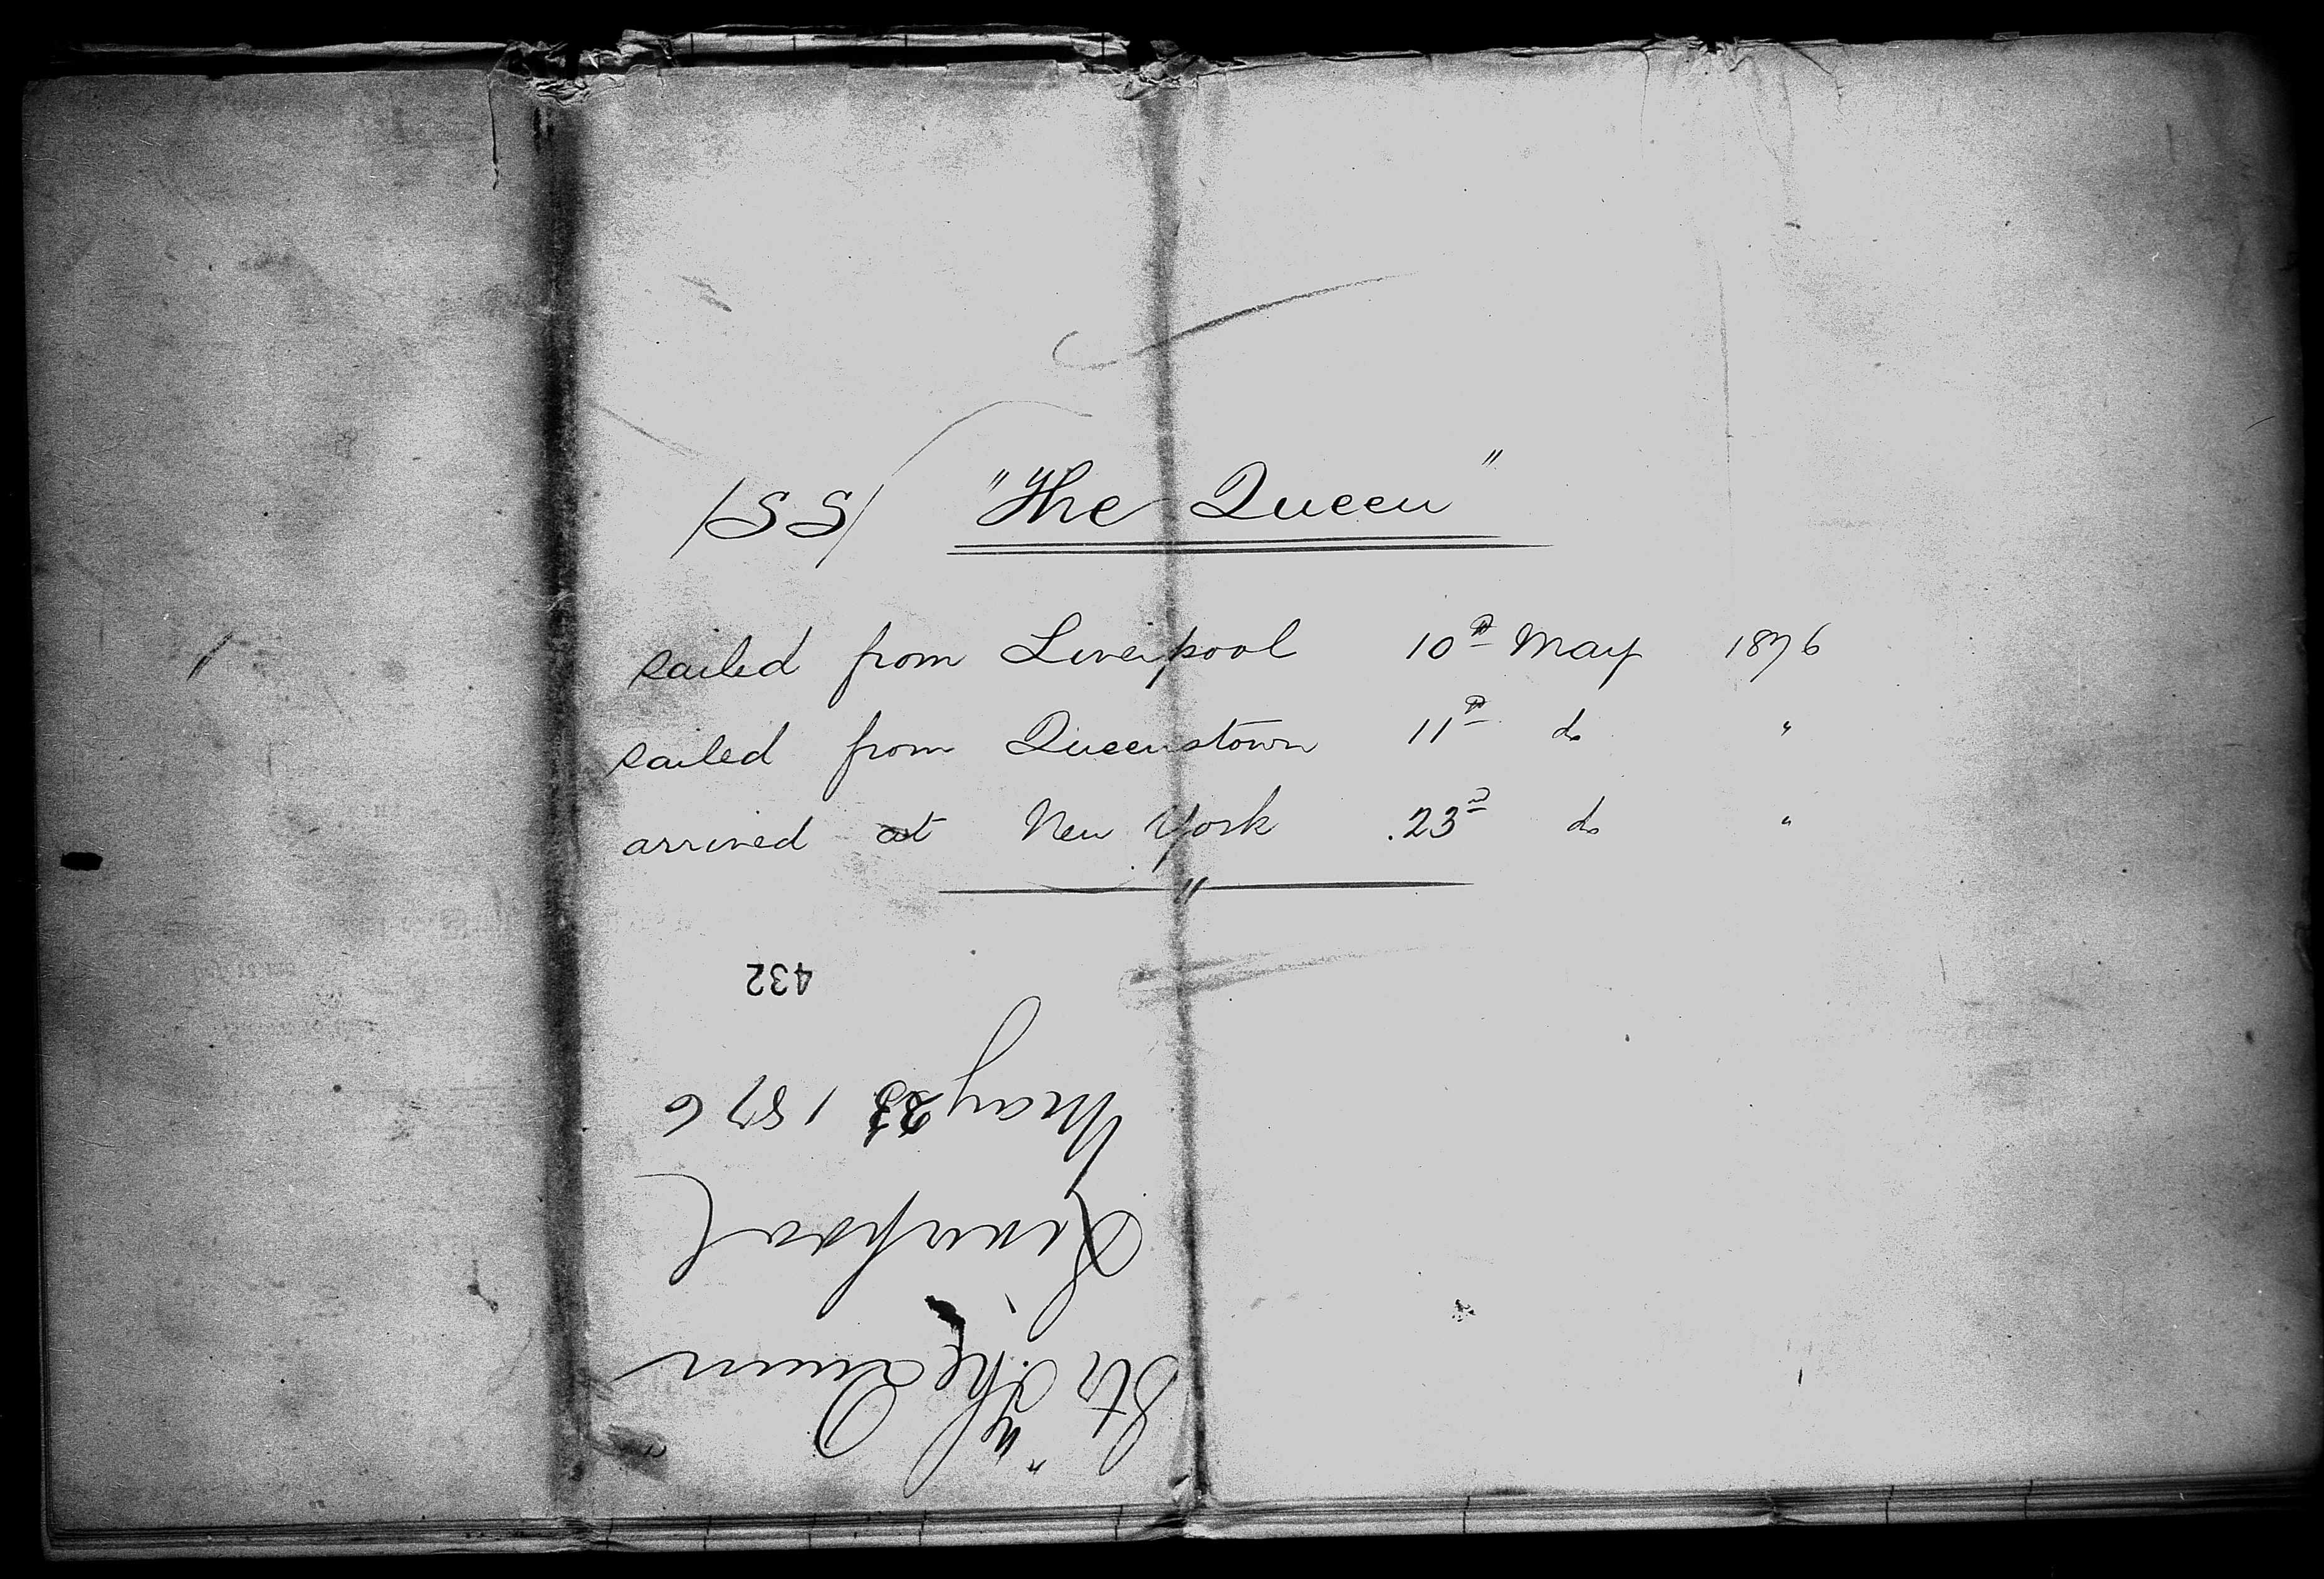 /SS/ "The Queen"
sailed from Liverpool 10th May 1876
sailed from Queenstown 11th do "
arrived at New York .23d do "
"
432
Str "The Queen"
Liverpool
May 23 1876